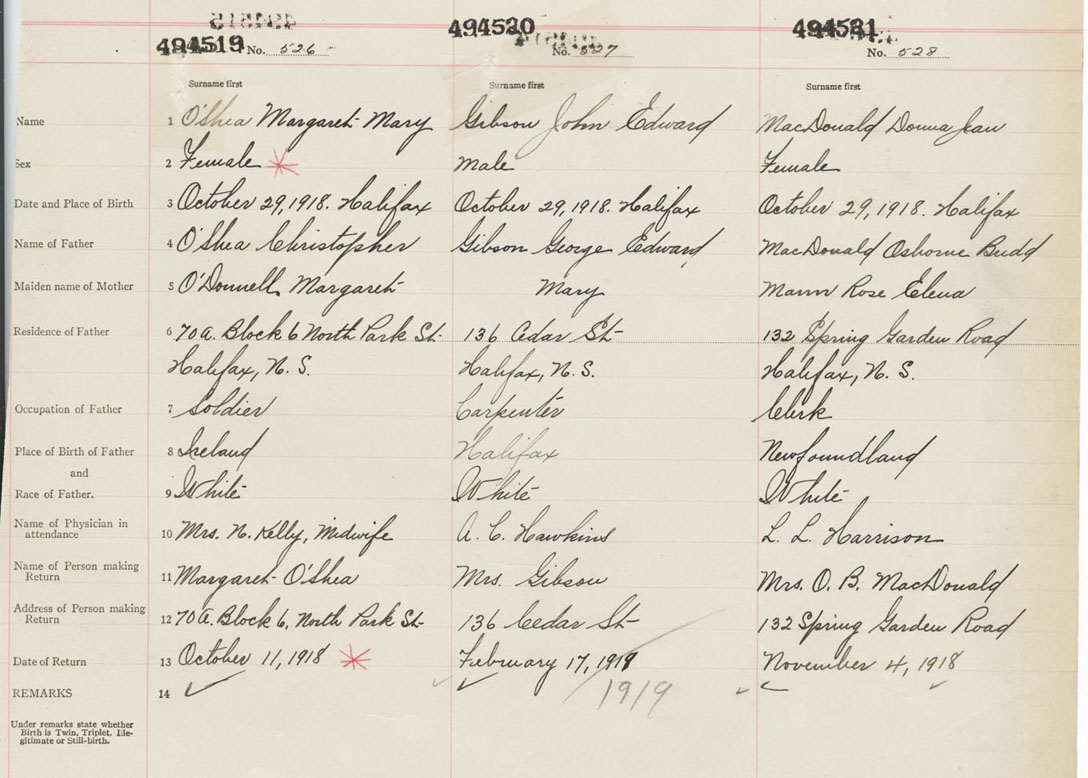 494519 494520 494521
No. 526 No. 527 No. 528
Surname first Surname first Surname first
Name 1 O'Shea Margaret Mary Gibson John Edward MacDonald Donna Jean
Sex 2 Female Male Female
Date and Place of Birth 3 October 29, 1918. Halifax October 29, 1918. Halifax October 29, 1918. Halifax
Name of Father 4 O'Shea Christopher Gibson George Edward MacDonald Osborne Budd
Maiden name of Mother 5 O'Donnell Margaret Mary Mann Rose Elena
Residence of Father 6 70A. Block 6 North Park St. 136 Cedar St 132 Spring Garden Road
Halifax, N. S. Halifax, N. S. Halifax, N. S.
Occupation of Father 7 Soldier Carpenter Clerk
Place of Birth of Father 8 Ireland Halifax Newfoundland
and
Race of Father. 9 White White White
Name of Physician in
attendance 10 Mrs. N. Kelly, Midwife A. C. Hawkins L. L. Harrison
Name of Person making
Return 11 Margaret O'Shea Mrs. Gibson Mrs. O. B. MacDonald
Address of Person making
Return 12 70A. Block 6, North Park St 136 Cedar St 132 Spring Garden Road
Date of Return 13 October 11, 1918 February 17, 1919 November 4, 1918
REMARKS 14 1919
Under remarks state whether
Birth is Twin, Triplet, Ille-
gitimate or Still-birth.